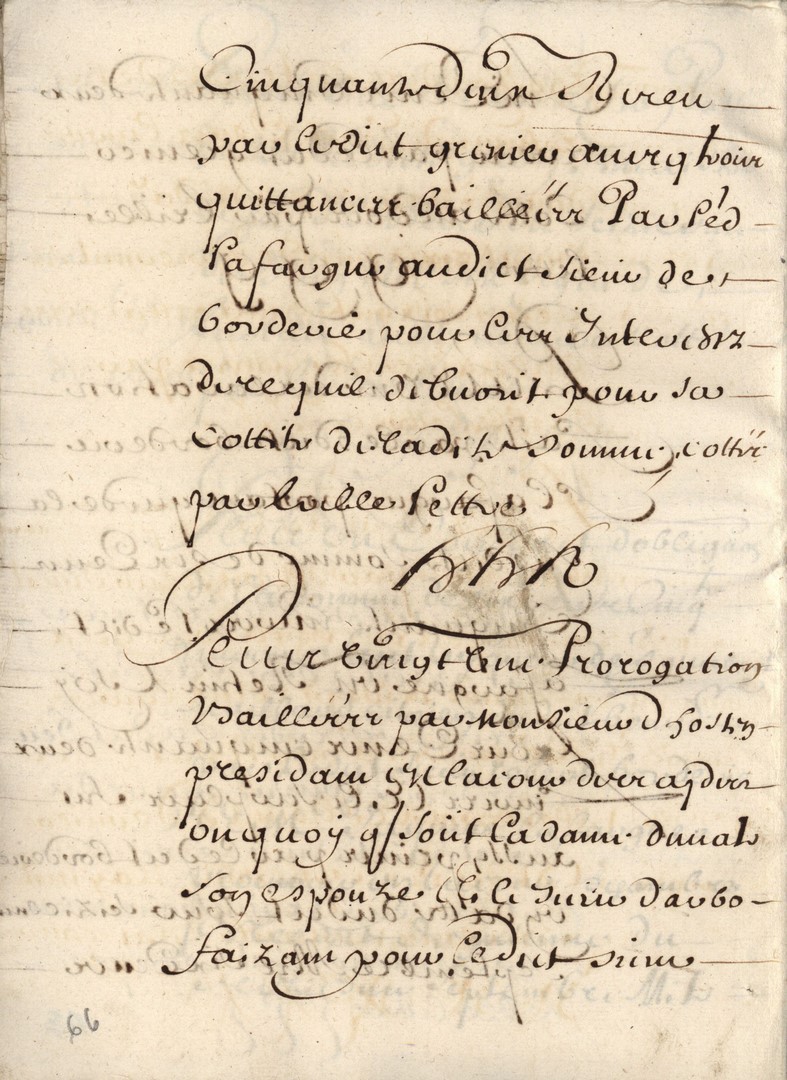 Cinquante deux Receu
par ledict grenier avecq trois
quittances baillées Par led
Lafargue audict sieur de
borderie pour les Interestz
de ce quil debvoit pour sa
cottite de ladite somme cottée
par ladite lettre
hhh
Pour vingt une Prorogation
Baillées par Monsieur dhostn
presidam en la cour des aydes
ou quoy q/ soit La dame duval
son espouze et le sieur darbo
faizam pour Ledict sieur
66